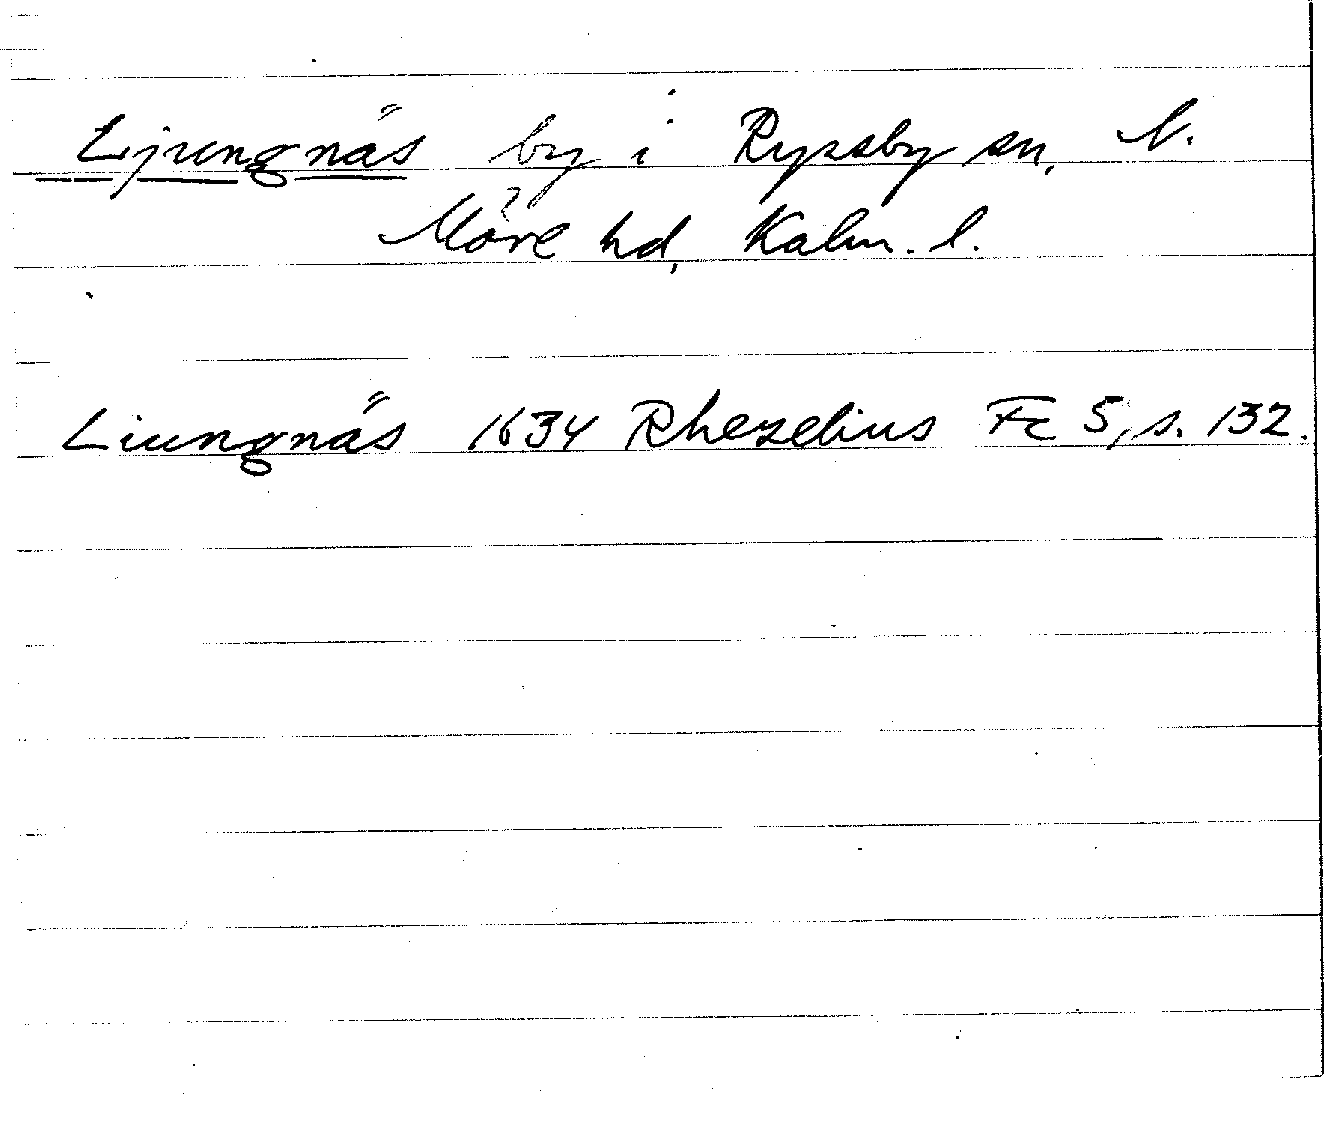 Ljungnäs by i Ryssby sn, N.
Möre hd, Kalm. l.
Liungnäs 1634 Rhezelius Fc 5, s. 132.